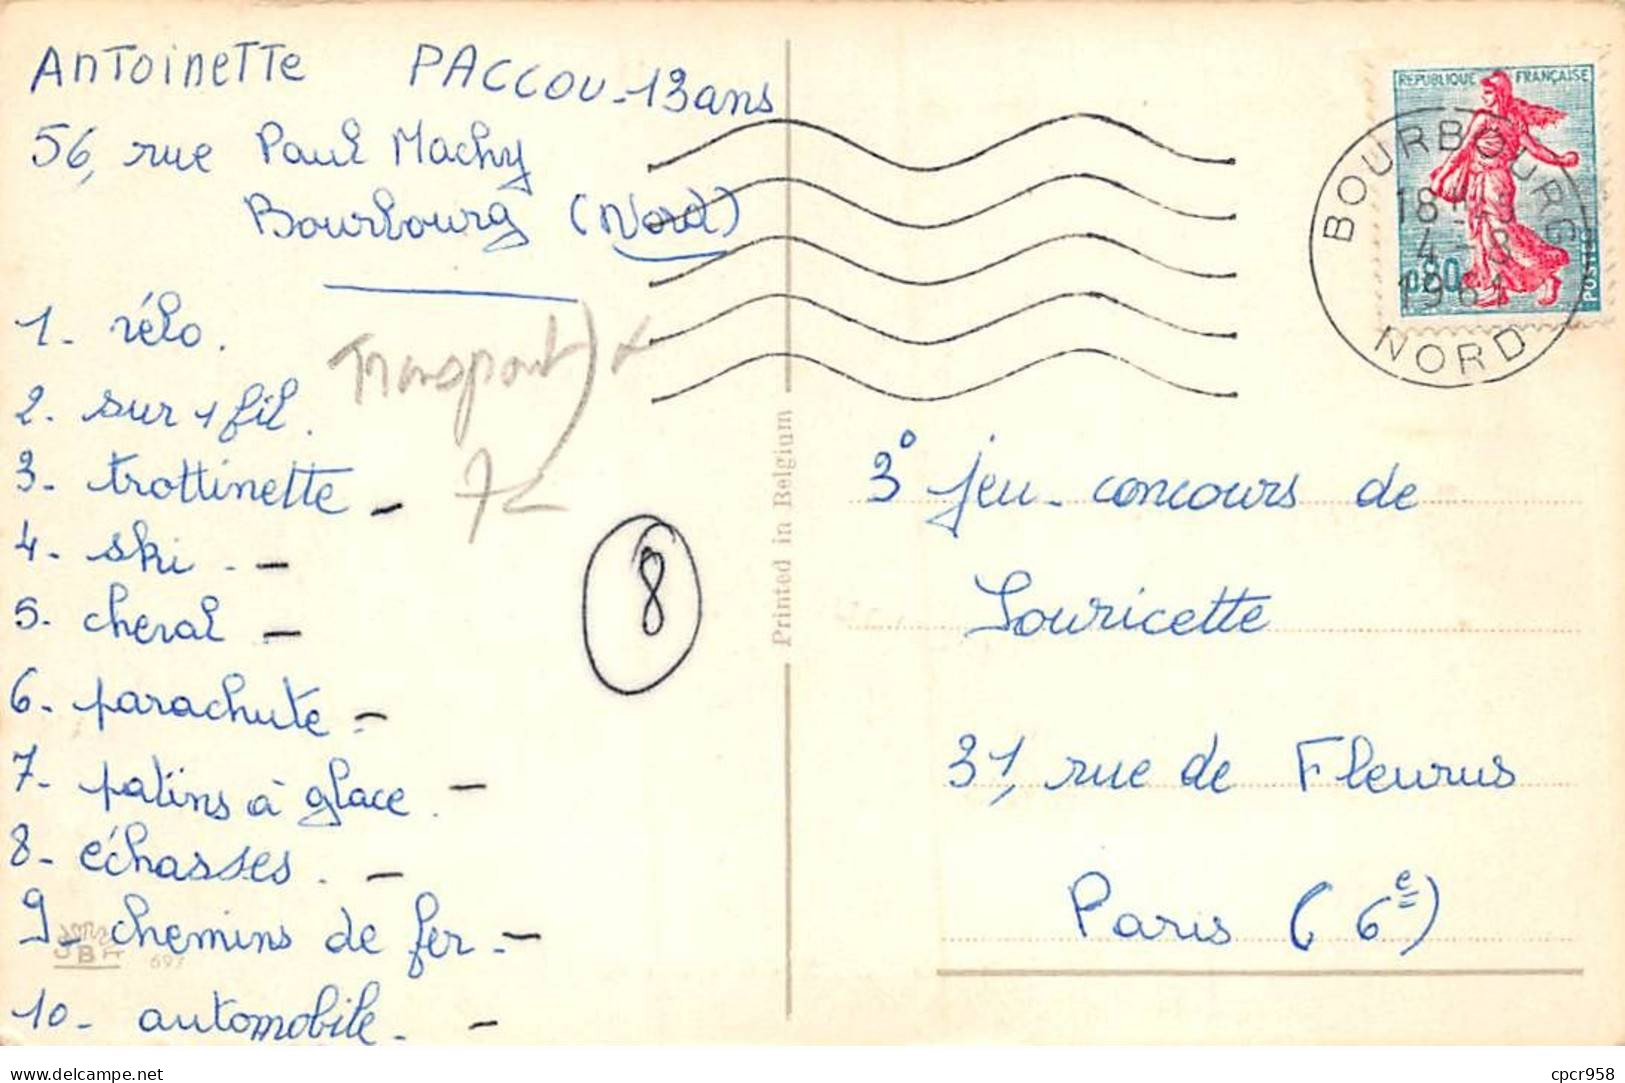 Antoinette PACCOU - 13 ans
56, rue Paul Machy
Bourbourg (Nord)
1- vélo.
2- sur 1 fil.
3- trottinette -
4- ski. -
5- cheval -
6- parachute -
7- patins à glace. -
8- échasses. -
9- chemins de fer. -
10- automobile. -
Transport)
7
8
JBA
697
Printed in Belgium
REPUBLIQUE FRANÇAISE
POSTES
BOURBOURG
18H
4-3
196
NORD
3° jeu-concours de
Souricette
31, rue de Fleurus
Paris (6e)
delcampe.net
cpcr958